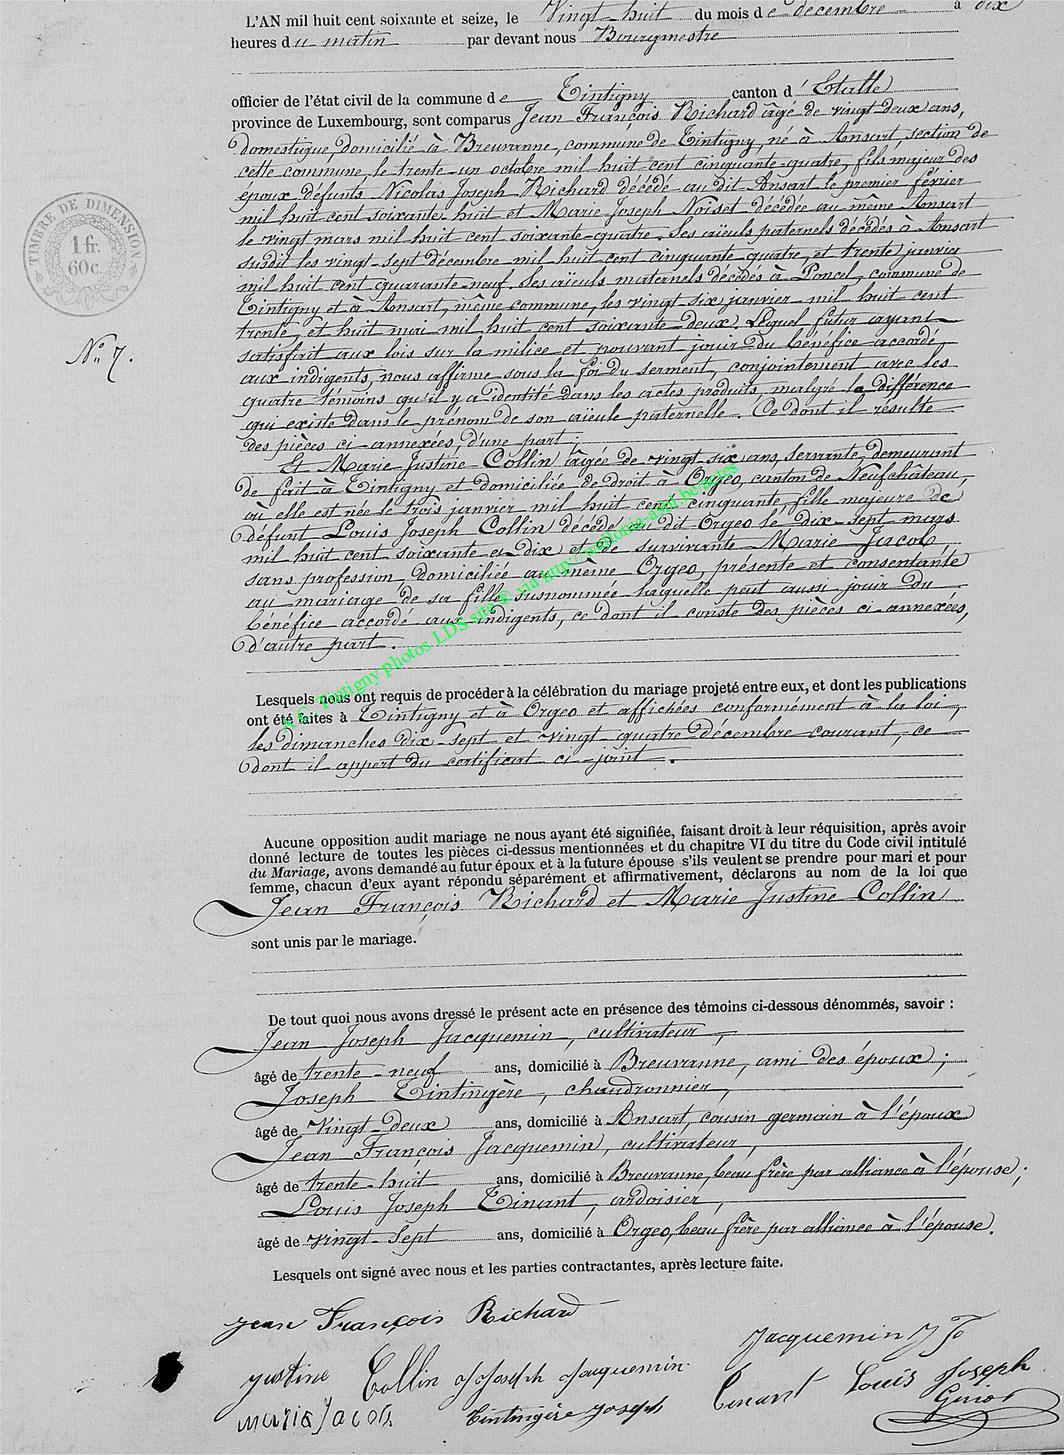 L'AN mil huit cent soixante et seize, le Vingt-huit du mois de decembre à dix
heures du matin par devant nous Bourgmestre
officier de l'état civil de la commune de Tintigny canton d'Etalle
province de Luxembourg, sont comparus Jean François Richard âgé de vingt deux ans,
domestique, domicilié à Breuvanne, commune de Tintigny, né à Ansart, section de
cette commune, le trente un octobre mil huit cent cinquante-quatre, fils majeur des
époux défunts Nicolas Joseph Richard décédé au dit Ansart le premier février
mil huit cent soixante huit et Marie Joseph Noiset décédée au même Ansart
le vingt mars mil huit cent soixante-quatre. Ses aïeuls paternels décédés à Ansart
susdit les vingt-sept décembre mil huit cent cinquante-quatre, et trente janvier
mil huit cent quarante-neuf. Ses aïeuls maternels décédés à Poncel, commune de
Tintigny et à Ansart, même commune, les vingt six janvier mil huit cent
trente, et huit mai mil huit cent soixante-deux. Lequel futur ayant
satisfait aux lois sur la milice et pouvant jouir du bénéfice accordé
aux indigents, nous affirme sous la foi du serment, conjointement avec les
quatre témoins qu'il y a identité dans les actes produits, malgré la différence
qui existe dans le prénom de son aïeule paternelle. Ce dont il résulte
des pièces ci-annexées, d'une part;
Et Marie Justine Collin âgée de vingt six ans, servante, demeurant
de fait à Tintigny et domiciliée de droit à Orgeo, canton de Neufchâteau,
où elle est née le trois janvier mil huit cent cinquante, fille majeure de
défunt Louis Joseph Collin décédé au dit Orgeo le dix-sept mars
mil huit cent soixante et dix et de survivante Marie Jacob,
sans profession, domiciliée au même Orgeo, présente et consentante
au mariage de sa fille susnommée laquelle peut aussi jouir du
bénéfice accordé aux indigents, ce dont il conste des pièces ci-annexées,
d'autre part.
A.C. Tintigny photos LDS site @ via http://wallonia-asbl.be/actes
TIMBRE DE DIMENSION
1 fr.
60 c.
N° 7.
Lesquels nous ont requis de procéder à la célébration du mariage projeté entre eux, et dont les publications
ont été faites à Tintigny et à Orgeo et affichées conformément à la loi,
les dimanches dix-sept et vingt-quatre decembre courant, ce
dont il appert du certificat ci-joint.
Aucune opposition audit mariage ne nous ayant été signifiée, faisant droit à leur réquisition, après avoir
donné lecture de toutes les pièces ci-dessus mentionnées et du chapitre VI du titre du Code civil intitulé
du Mariage, avons demandé au futur époux et à la future épouse s'ils veulent se prendre pour mari et pour
femme, chacun d'eux ayant répondu séparément et affirmativement, déclarons au nom de la loi que
Jean François Richard et Marie Justine Collin
sont unis par le mariage.
De tout quoi nous avons dressé le présent acte en présence des témoins ci-dessous dénommés, savoir :
Jean Joseph Jacquemin, cultivateur,
âgé de trente-neuf ans, domicilié à Breuvanne, ami des époux;
Joseph Tintingère, chaudronnier,
âgé de vingt-deux ans, domicilié à Ansart, cousin germain à l'époux
Jean François Jacquemin, cultivateur,
âgé de trente-huit ans, domicilié à Breuvanne, beau frère par alliance à l'épouse;
Louis Joseph Tinant, ardoisier,
âgé de vingt-sept ans, domicilié à Orgeo, beau frère par alliance à l'épouse.
Lesquels ont signé avec nous et les parties contractantes, après lecture faite.
Jean François Richard
Jacquemin J F
Justine Collin J Joseph Jacquemin Tinant Louis Joseph
Maria Jacob Tintingère Joseph